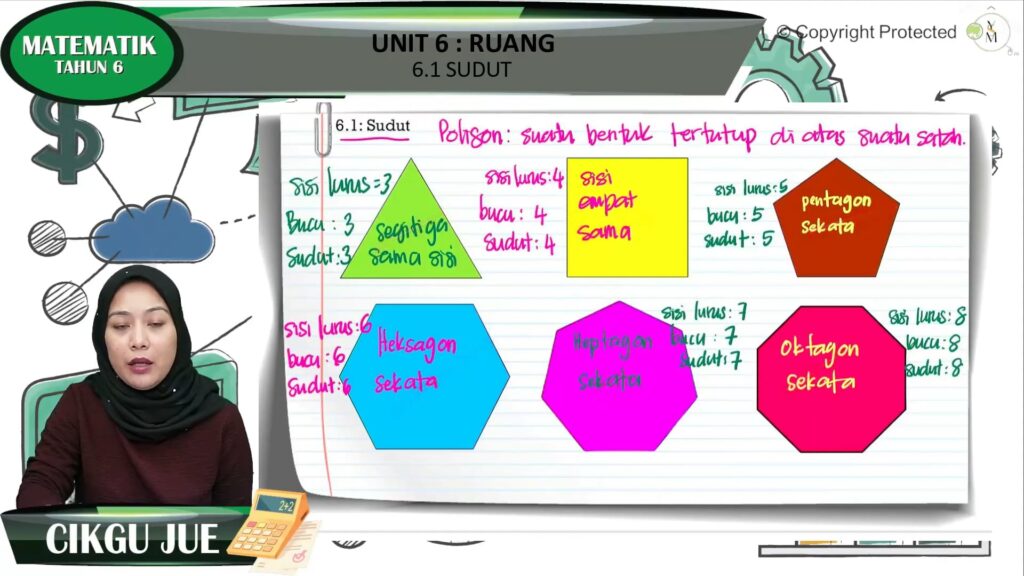 MATEMATIK
TAHUN 6
UNIT 6 : RUANG
6.1 SUDUT
© Copyright Protected
YM
6.1: Sudut
Poligon: suatu bentuk tertutup di atas suatu satah.
sisi lurus = 3
Bucu : 3
sudut: 3
segitiga
sama sisi
sisi lurus: 4
bucu : 4
sudut: 4
sisi
empat
sama
sisi lurus: 5
bucu : 5
sudut : 5
pentagon
sekata
sisi lurus: 6
bucu: 6
sudut: 6
Heksagon
sekata
sisi lurus : 7
bucu : 7
sudut: 7
Heptagon
sekata
Oktagon
sekata
sisi lurus: 8
bucu: 8
sudut: 8
CIKGU JUE
2+2